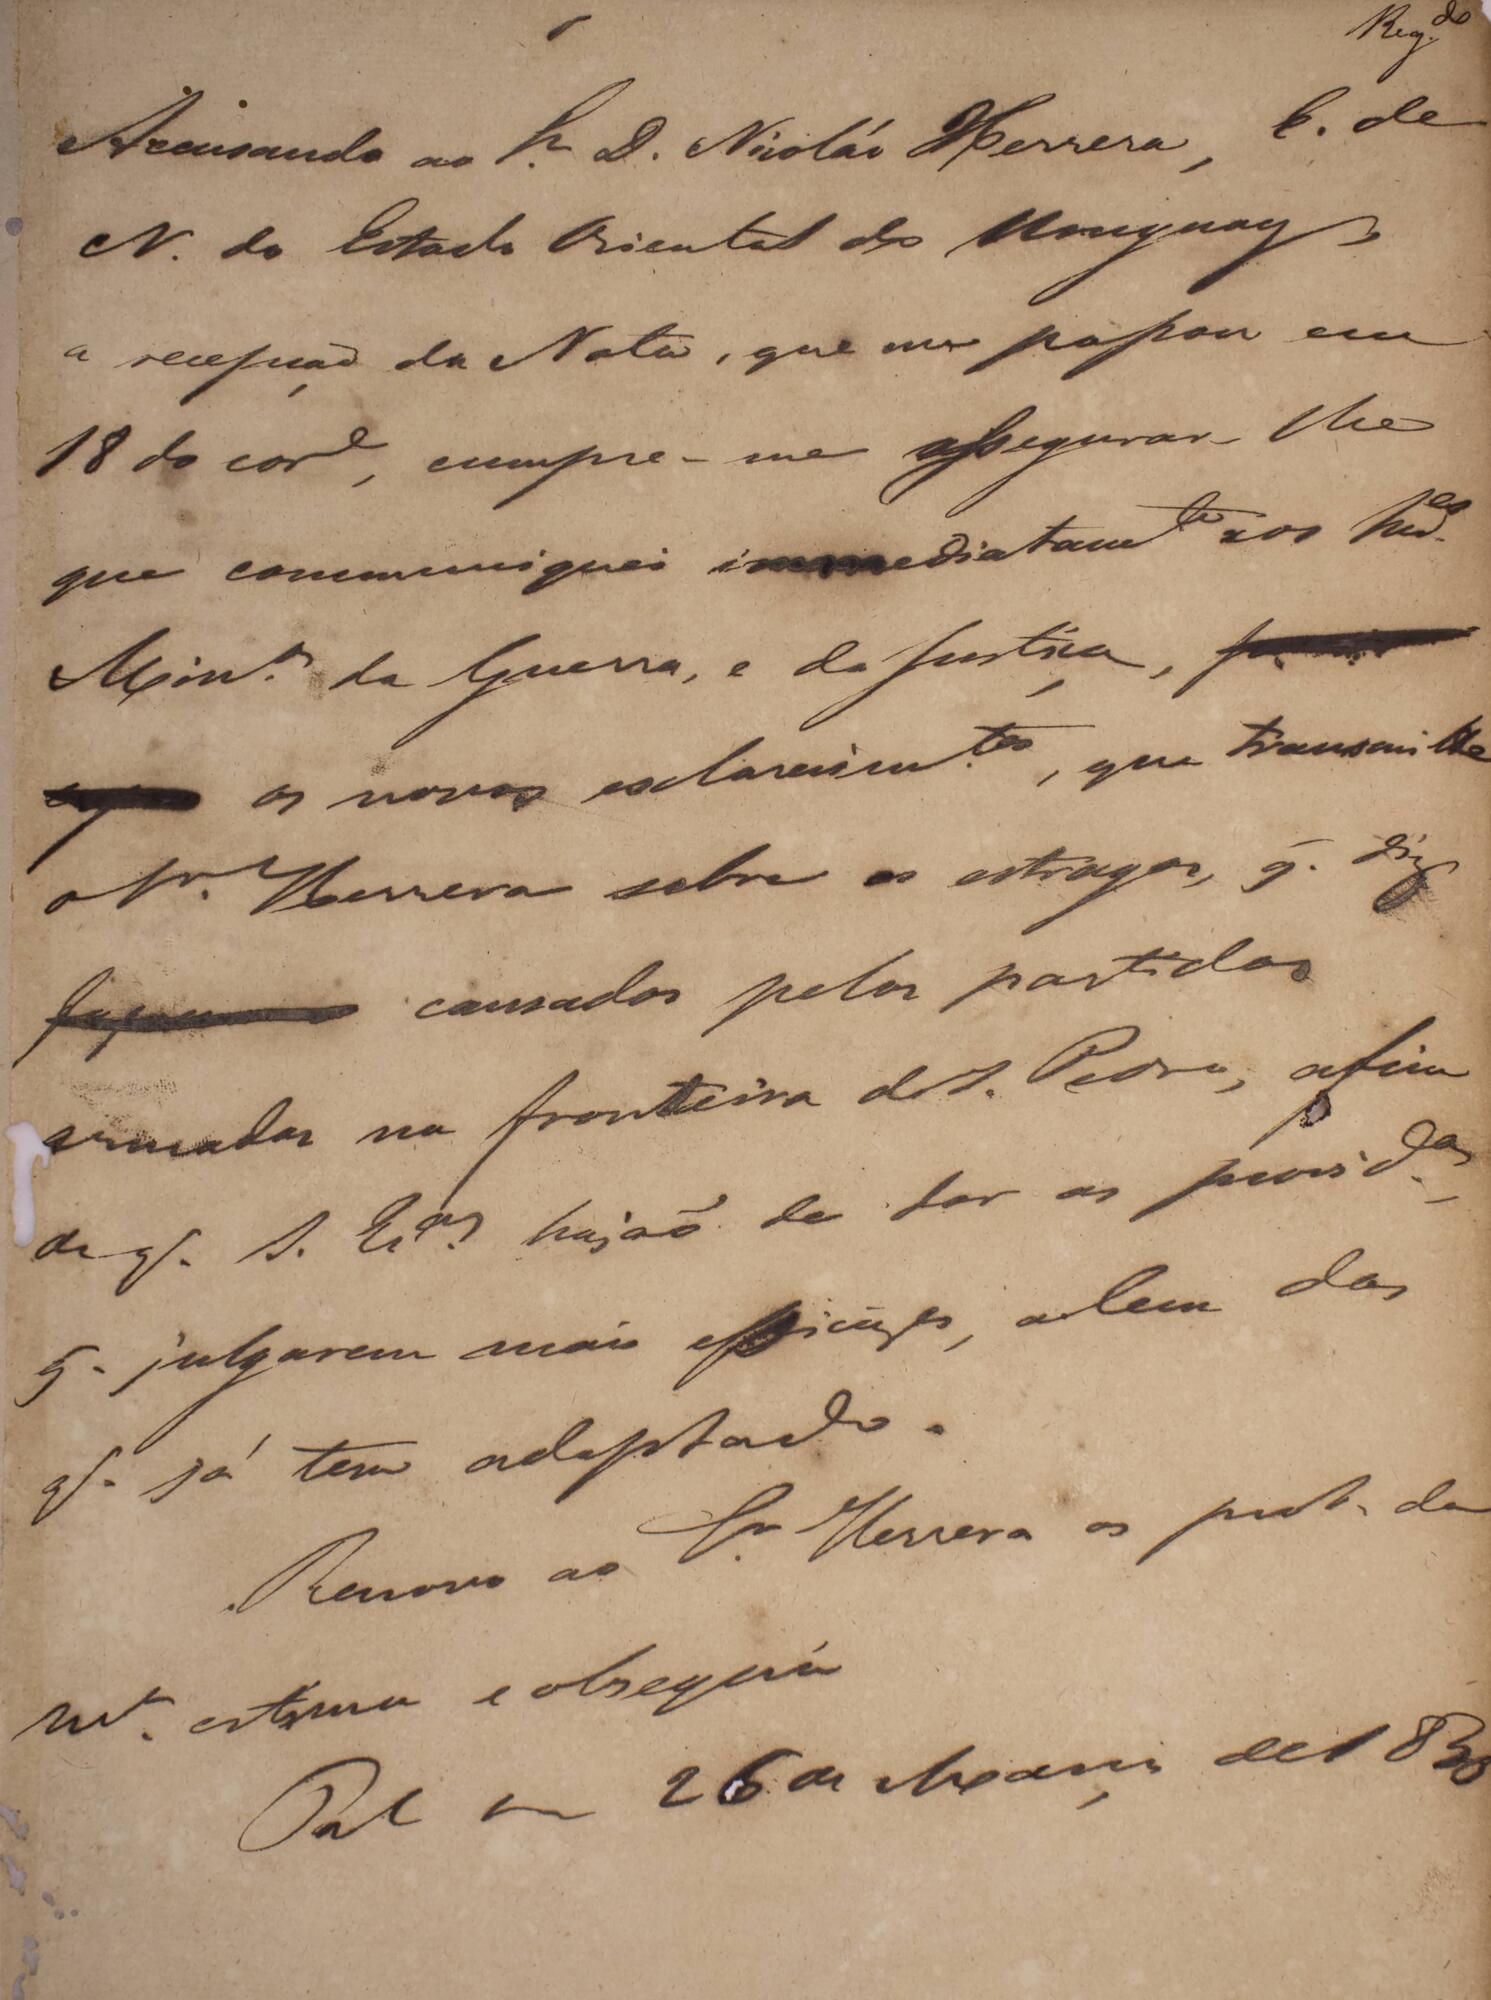 Reg.do
Accusando ao Sr. D. Nicoláo Herrera, E. de
N. do Estado Oriental do Uruguay
a recepção da Nota, que me passou em
18 do corre, cumpre-me assegurar-lhe
que communiquei immediatamte aos
Min.os da Guerra, e da Justiça,
os novos esclarecim.tos, que transmitte
o Sr. Herrera sobre os estragos, q. diz
causados pelos partidos
armados na fronteira de S. Pedro, afim
de q. S. Exas. hajão de dar as provid.as,
q. julgarem mais efficazes, alem das
q. já tem adoptado.
Renovo ao Sr. Herrera os prot. da
mt. estima e obsequio
Pal em 26 de Março de 1830